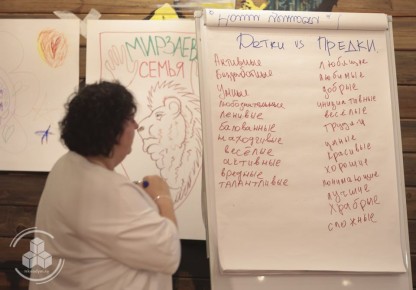 МИРЗАЕВ
СЕМЬЯ
Детки vs Предки
Активные
Умные
Любознательные
ленивые
балованные
находчивые
весёлые
активные
вредные
талантливые
любящие
любимые
добрые
инициативные
весёлые
ценные
красивые
хорошие
понимающие
лучшие
храбрые
сложные